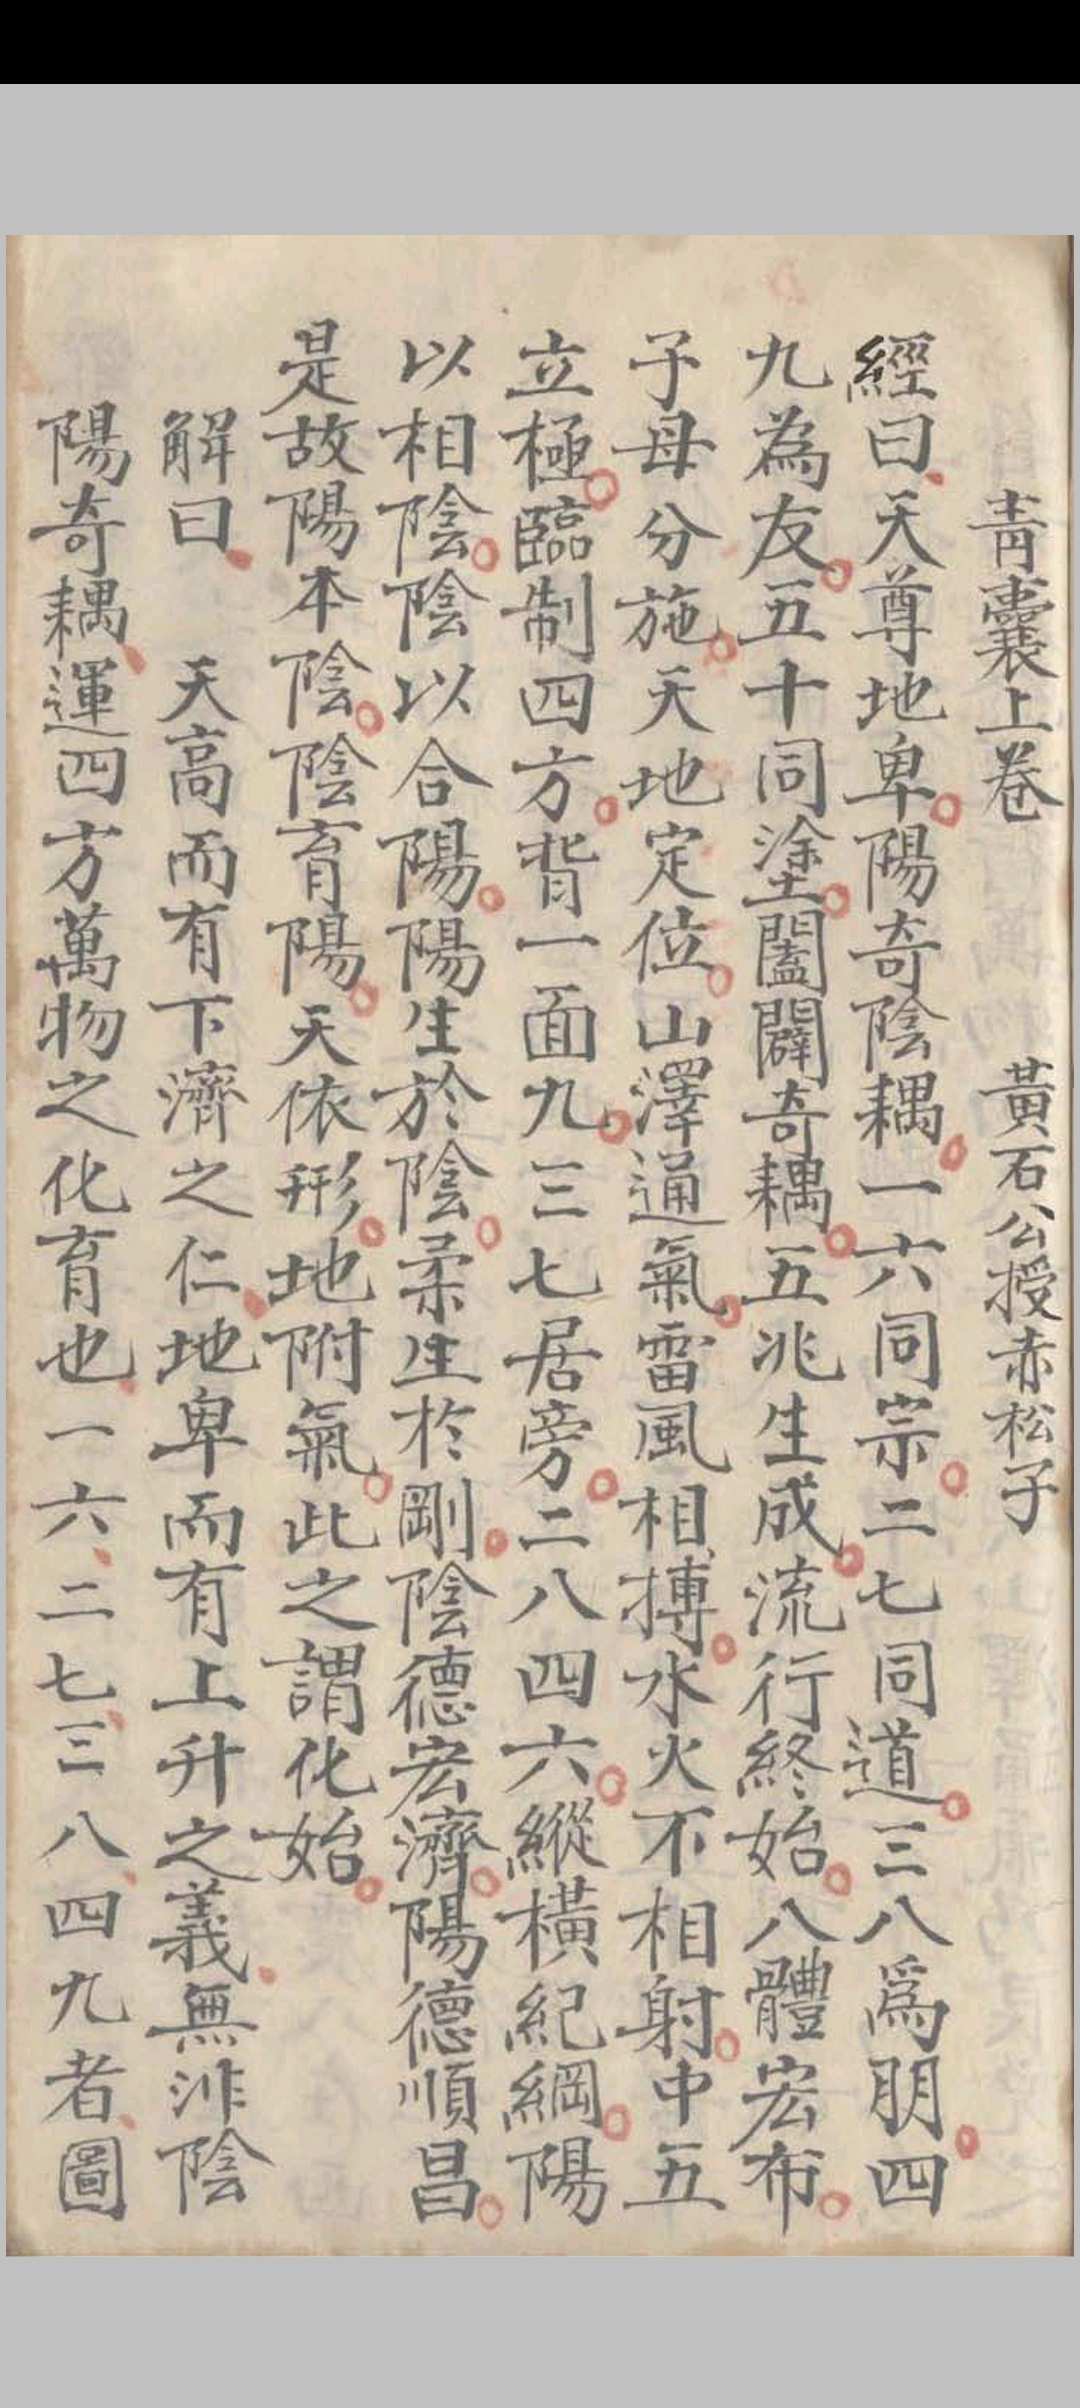 青囊上卷　黃石公授赤松子
經曰天尊地卑陽奇陰耦一六同宗二七同道三八爲朋四
九為友五十同塗闔闢奇耦五兆生成流行終始八體宏布
子母分施天地定位山澤通氣雷風相搏水火不相射中五
立極臨制四方背一面九三七居旁二八四六縱橫紀綱陽
以相陰陰以合陽陽生於陰柔生於剛陰德宏濟陽德順昌
是故陽本陰陰育陽天依形地附氣此之謂化始
解曰　天高而有下濟之仁地卑而有上升之義無非陰
陽奇耦運四方萬物之化育也一六二七三八四九者圖